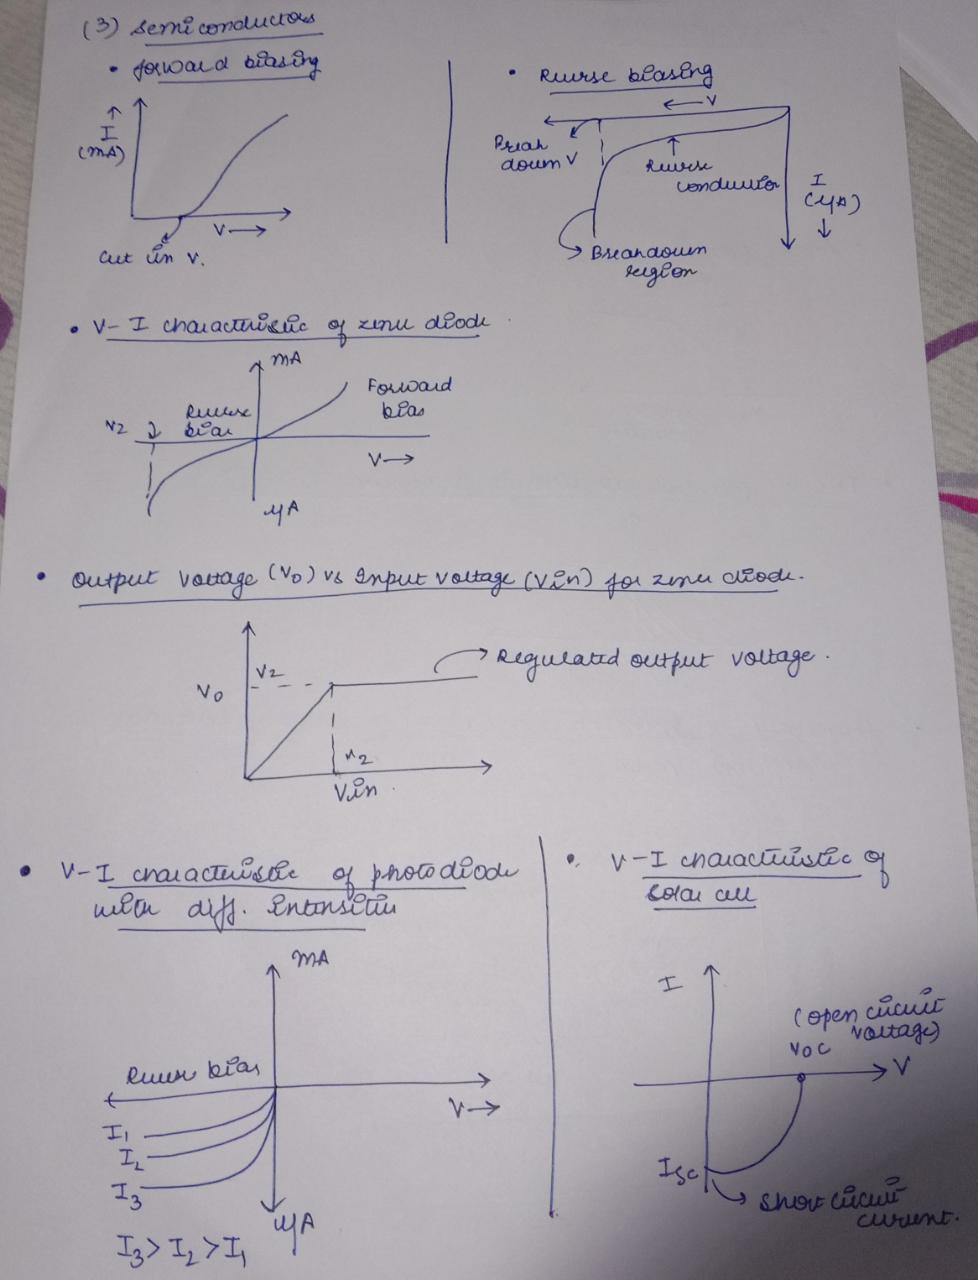 (3) Semiconductors
• forward biasing
↑
I
(mA)
V →
Cut in V.
• Reverse biasing
← V
Break
down V
Reverse
conductor
I
(μA)
↓
Breakdown
region
• V-I characteristic of zener diode
mA
Forward
bias
Reverse
bias
Vz
V →
μA
• Output voltage (Vo) vs Input voltage (Vin) for zener diode.
Vo
Vz
Regulated output voltage.
Vz
Vin
• V-I characteristic of photodiode
with diff. intensities
mA
Reverse bias
V →
I1
I2
I3
μA
I3 > I2 > I1
• V-I characteristic of
solar cell
I
(open circuit
voltage)
Voc
V
Isc
short circuit
current.